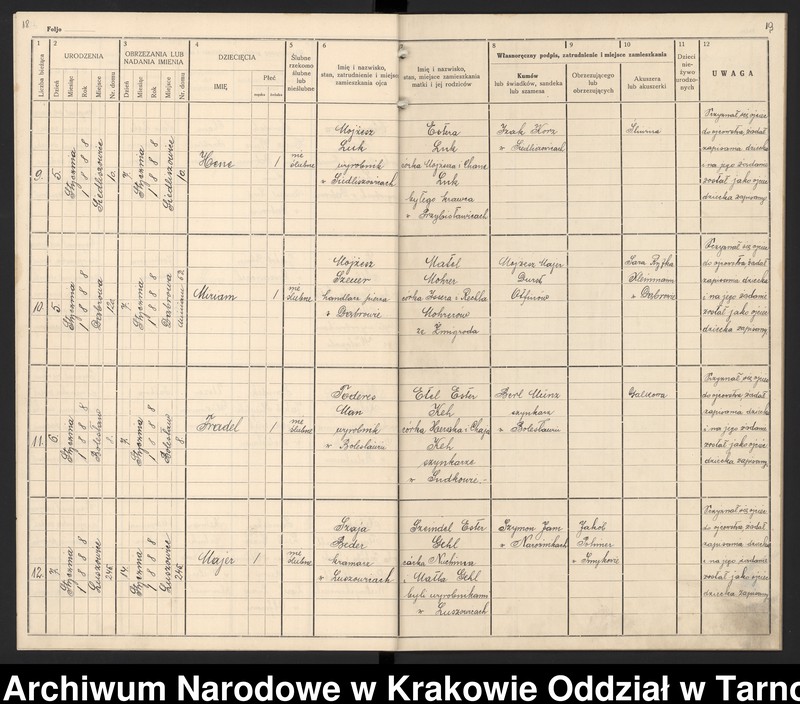 18
19
Foljo
1 2 3 4 5 6 7 8 9 10 11 12
Liczba bieżąca
URODZENIA
Dzień Miesiąc Rok Miejsce Nr. domu
OBRZEZANIA LUB NADANIA IMIENIA
Dzień Miesiąc Rok Miejsce Nr. domu
DZIECIĘCIA
IMIĘ
Płeć
męska żeńska
Ślubne
rzekomo
ślubne
lub
nieślubne
Imię i nazwisko,
stan, zatrudnienie i miejsce
zamieszkania ojca
Imię i nazwisko,
stan, miejsce zamieszkania
matki i jej rodziców
Własnoręczny podpis, zatrudnienie i miejsce zamieszkania
Kumów
lub świadków, sandeka
lub szamesa
Obrzezującego
lub
obrzezujących
Akuszera
lub akuszerki
Dzieci
nie-
żywo
urodzo-
nych
UWAGA
9. 5. Stycznia 1888 Siedliszowice 10. 7. Stycznia 1888 Siedliszowice 10.
Hene
1
nie
ślubne
Mojżesz
Luk
wyrobnik
w Siedliszowicach
Estera
Luk
córka Mojżesza i Chane
Luk
byłego krawca
w Przybisławicach
Izak Korz
w Siedliszowicach
Przyznał się ojciec
do ojcostwa, żądał
zapisania dziecka
i na jego żądanie
został jako ojciec
dziecka zapisany
10. 5. Stycznia 1888 Dąbrowa 7. Stycznia 1888 Dąbrowa
Miriam
1
nie
ślubne
Mojżesz
handlarz pierza
w Dąbrowie
Matel
Mohrer
córka Issera i Rechla
Mohrerow
ze Żmigroda
Mojżesz Majer
Otfinów
Sara Ryfka
Kleinmann
w Dąbrowie
Przyznał się ojciec
do ojcostwa, żądał
zapisania dziecka
i na jego żądanie
został jako ojciec
dziecka zapisany
11. 5. Stycznia 1888 Bolesław 7. Stycznia 1888 Bolesław 8.
Fradel
1
nie
ślubne
Foderes
Man
wyrobnik
w Bolesławiu
Etel Ester
Keh
córka Herszka i Chaja
Keh
szynkarze
w Gudkowie.
Berl Meinz
szynkarz
w Bolesławiu
Galdowa
Przyznał się ojciec
do ojcostwa, żądał
zapisania dziecka
i na jego żądanie
został jako ojciec
dziecka zapisany
12. 7. Stycznia 1888 Luszowice 246 14 Stycznia 1888 Luszowice 246
Majer
1
nie
ślubne
Szaja
Beder
kramarz
w Luszowicach
Szeindel Ester
Gehl
córka Nuchima
i Matla Gehl
byli wyrobnikami
w Luszowicach
Szymon Jam
w Narożnikach
Jakób
w Smykowie
Przyznał się ojciec
do ojcostwa, żądał
zapisania dziecka
i na jego żądanie
został jako ojciec
dziecka zapisany
Archiwum Narodowe w Krakowie Oddział w Tarno